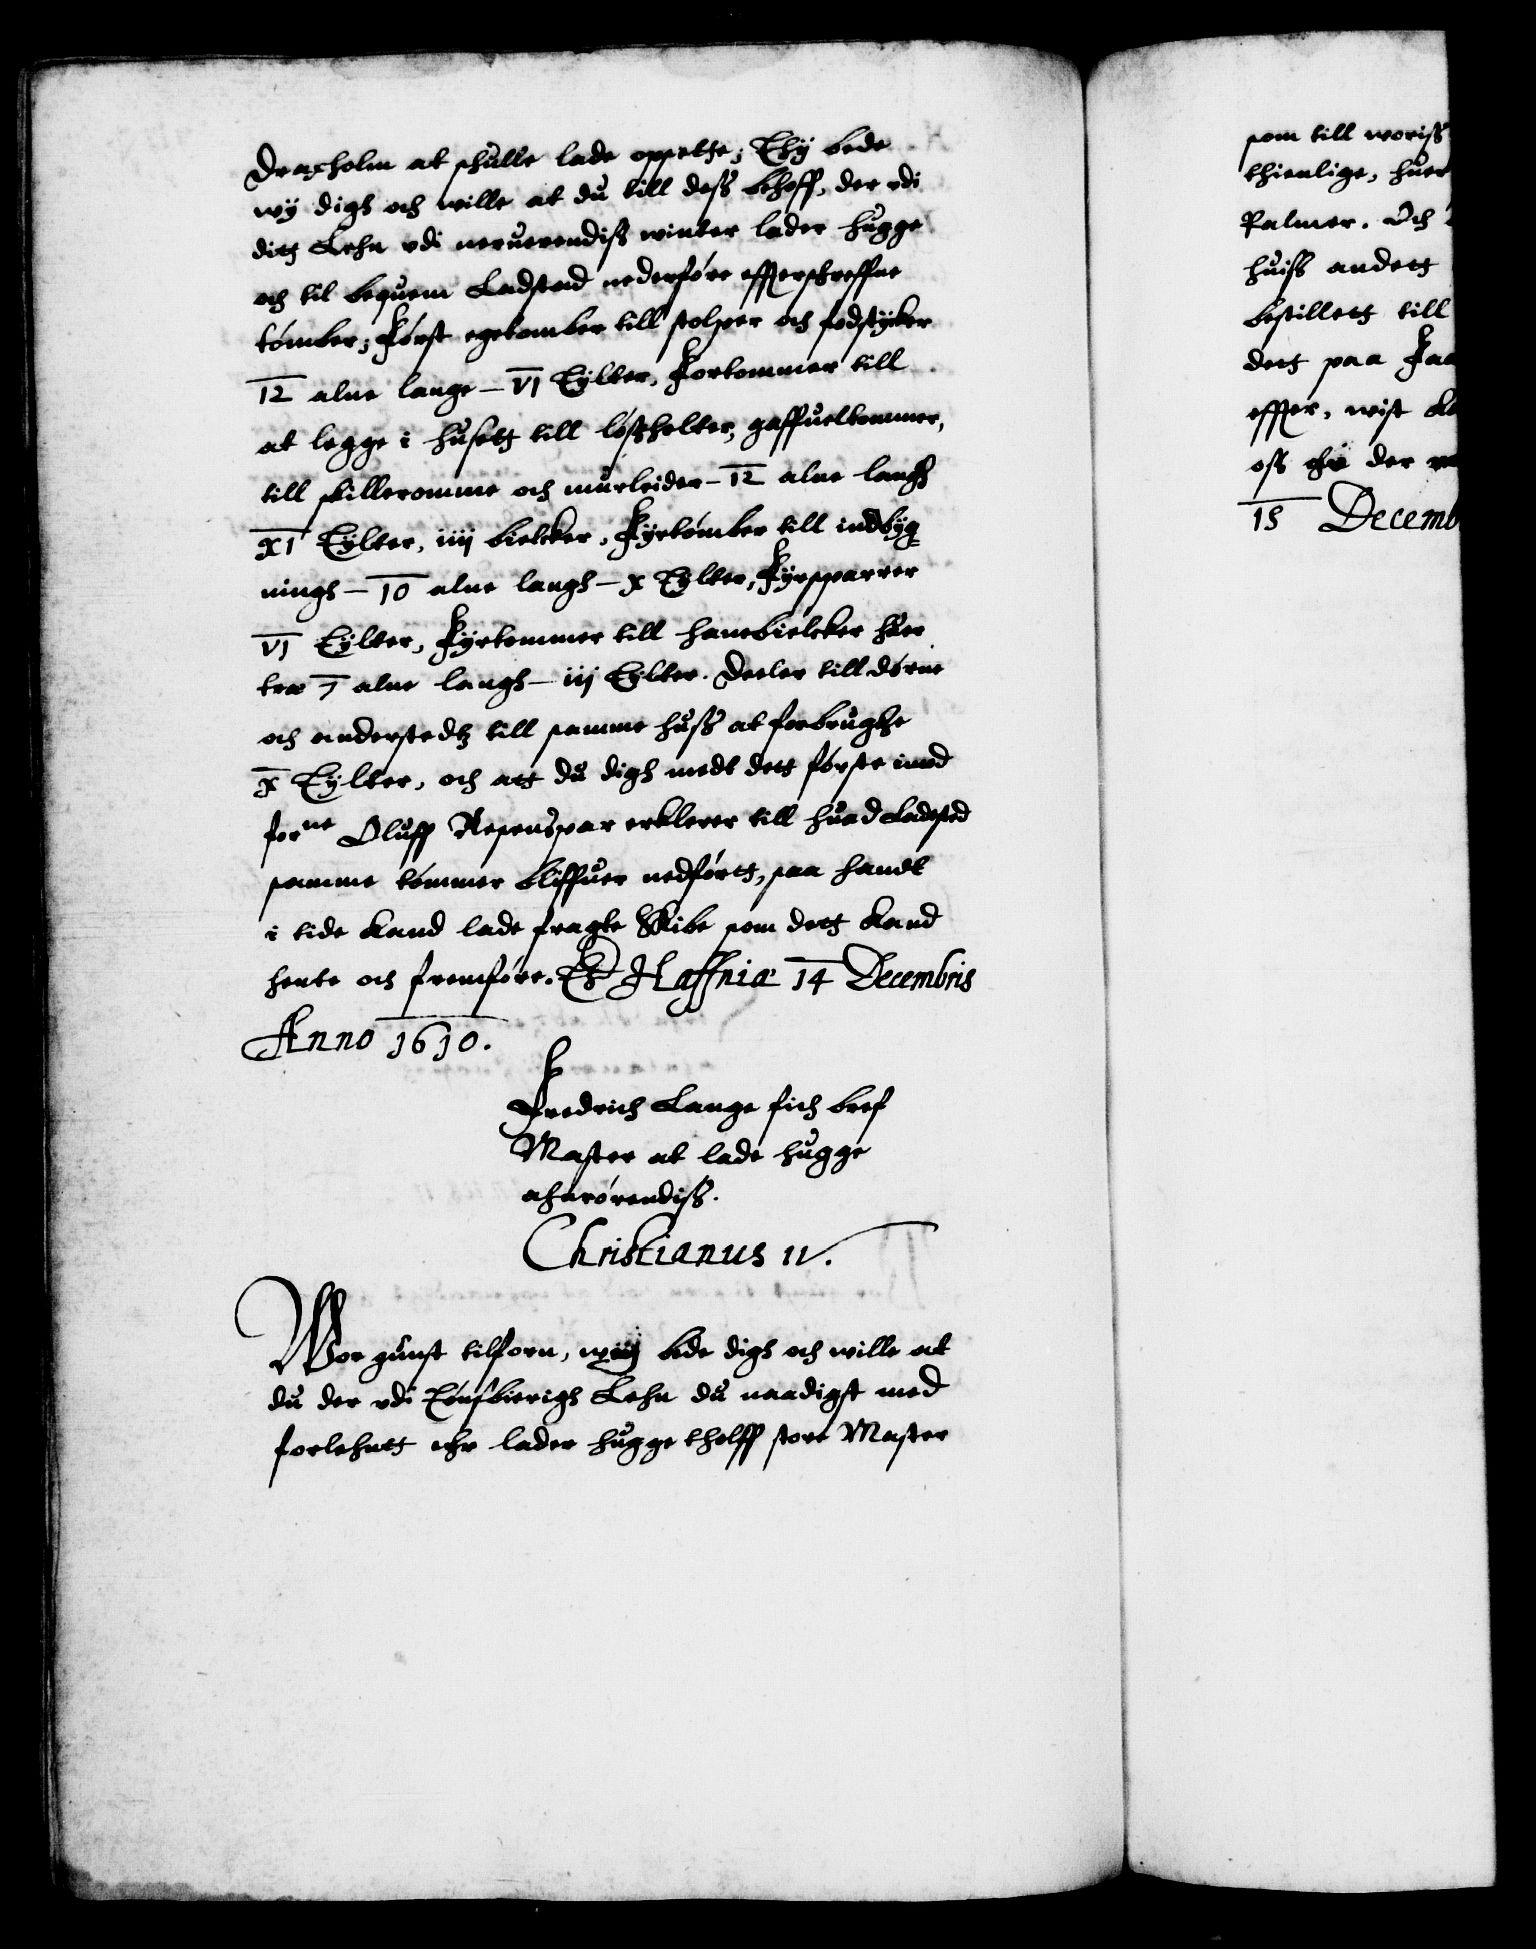 Draxholm at schulle lade opsette; Thÿ bede
wÿ digh och wille at du till dess behoff, der vdi
ditt Lehn vdi neruerendiss winter lader hugge
och til bequem Ladstad nederføre effterschreffne
tømber; Først egetomber till stolper och fodstÿker
12 alne lange - VI Tÿlter, Fortommer till
at legge i husett till løssholter, gaffueltommer,
till skilleromme och murleider - 12 alne langh
XI Tÿlter, iiij bielcker, Fÿrtømber till indbÿg
nings - 10 alne langh - X Tÿlter, Fÿrsparrer
VI Tÿlter, Fÿrtommer till hanebielcker huer
træ 7 alne langh - iij Tÿlter. Deeler till dørne
och anderstedtz till samme huss at forbrughe
X Tÿlter, och att du digh medt dett første imod
forne Oluff Rosenspar erklerer till huad Ladested
samme tømmer bliffuer nedførtt, saa handt
i tide kand lade fragte Skibe som dett kand
hente och fremføre. Ex Haffniæ 14 Decembris
Anno 1610.
Fredrich Lange fich bref
Master at lade hugge
anrørendiss.
Christianus IV.
Wor gunst tilforn, wij bede digh och wille at
du der vdi Tønsbierigh Lehn du naadigst med
forlehntt ehr lader hugge tholff store Master
som till woriss
thienlige, huer
Palmer. Och
huiss andett
bestillett till
dett paa
effter, wist
oss der
15 Decemb